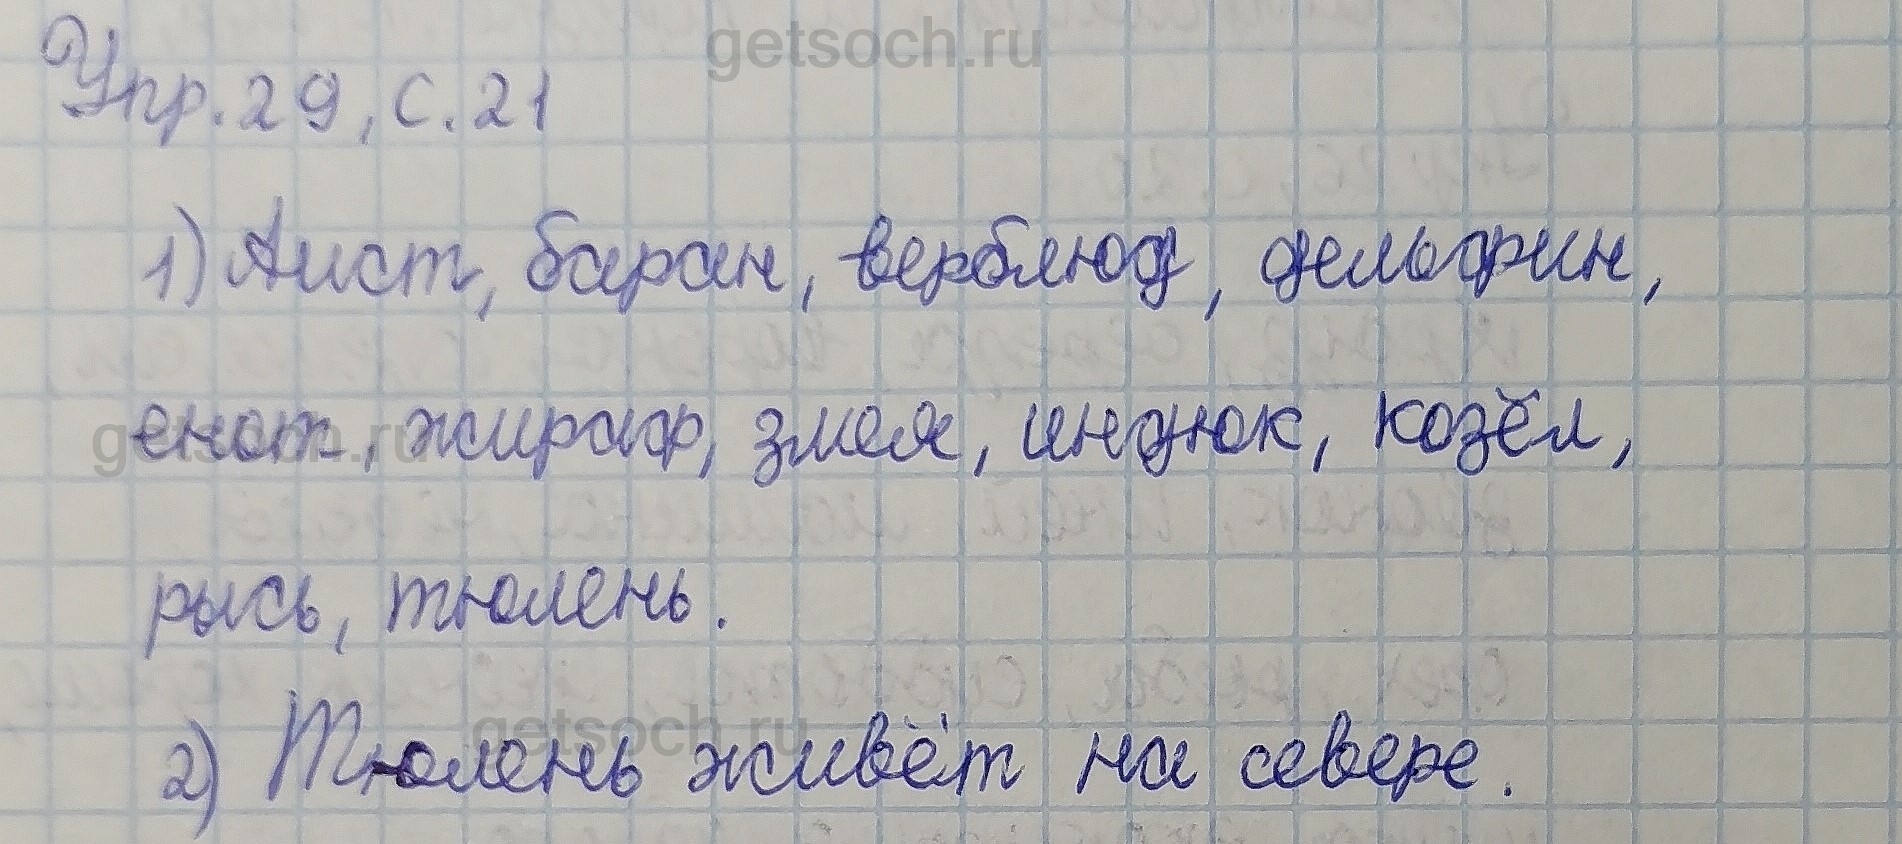 getsoch.ru
Упр. 29, с. 21
1) Аист, баран, верблюд, дельфин,
енот, жираф, змея, индюк, козёл,
getsoch.ru
рысь, тюлень.
getsoch.ru
2) Тюлень живёт на севере.